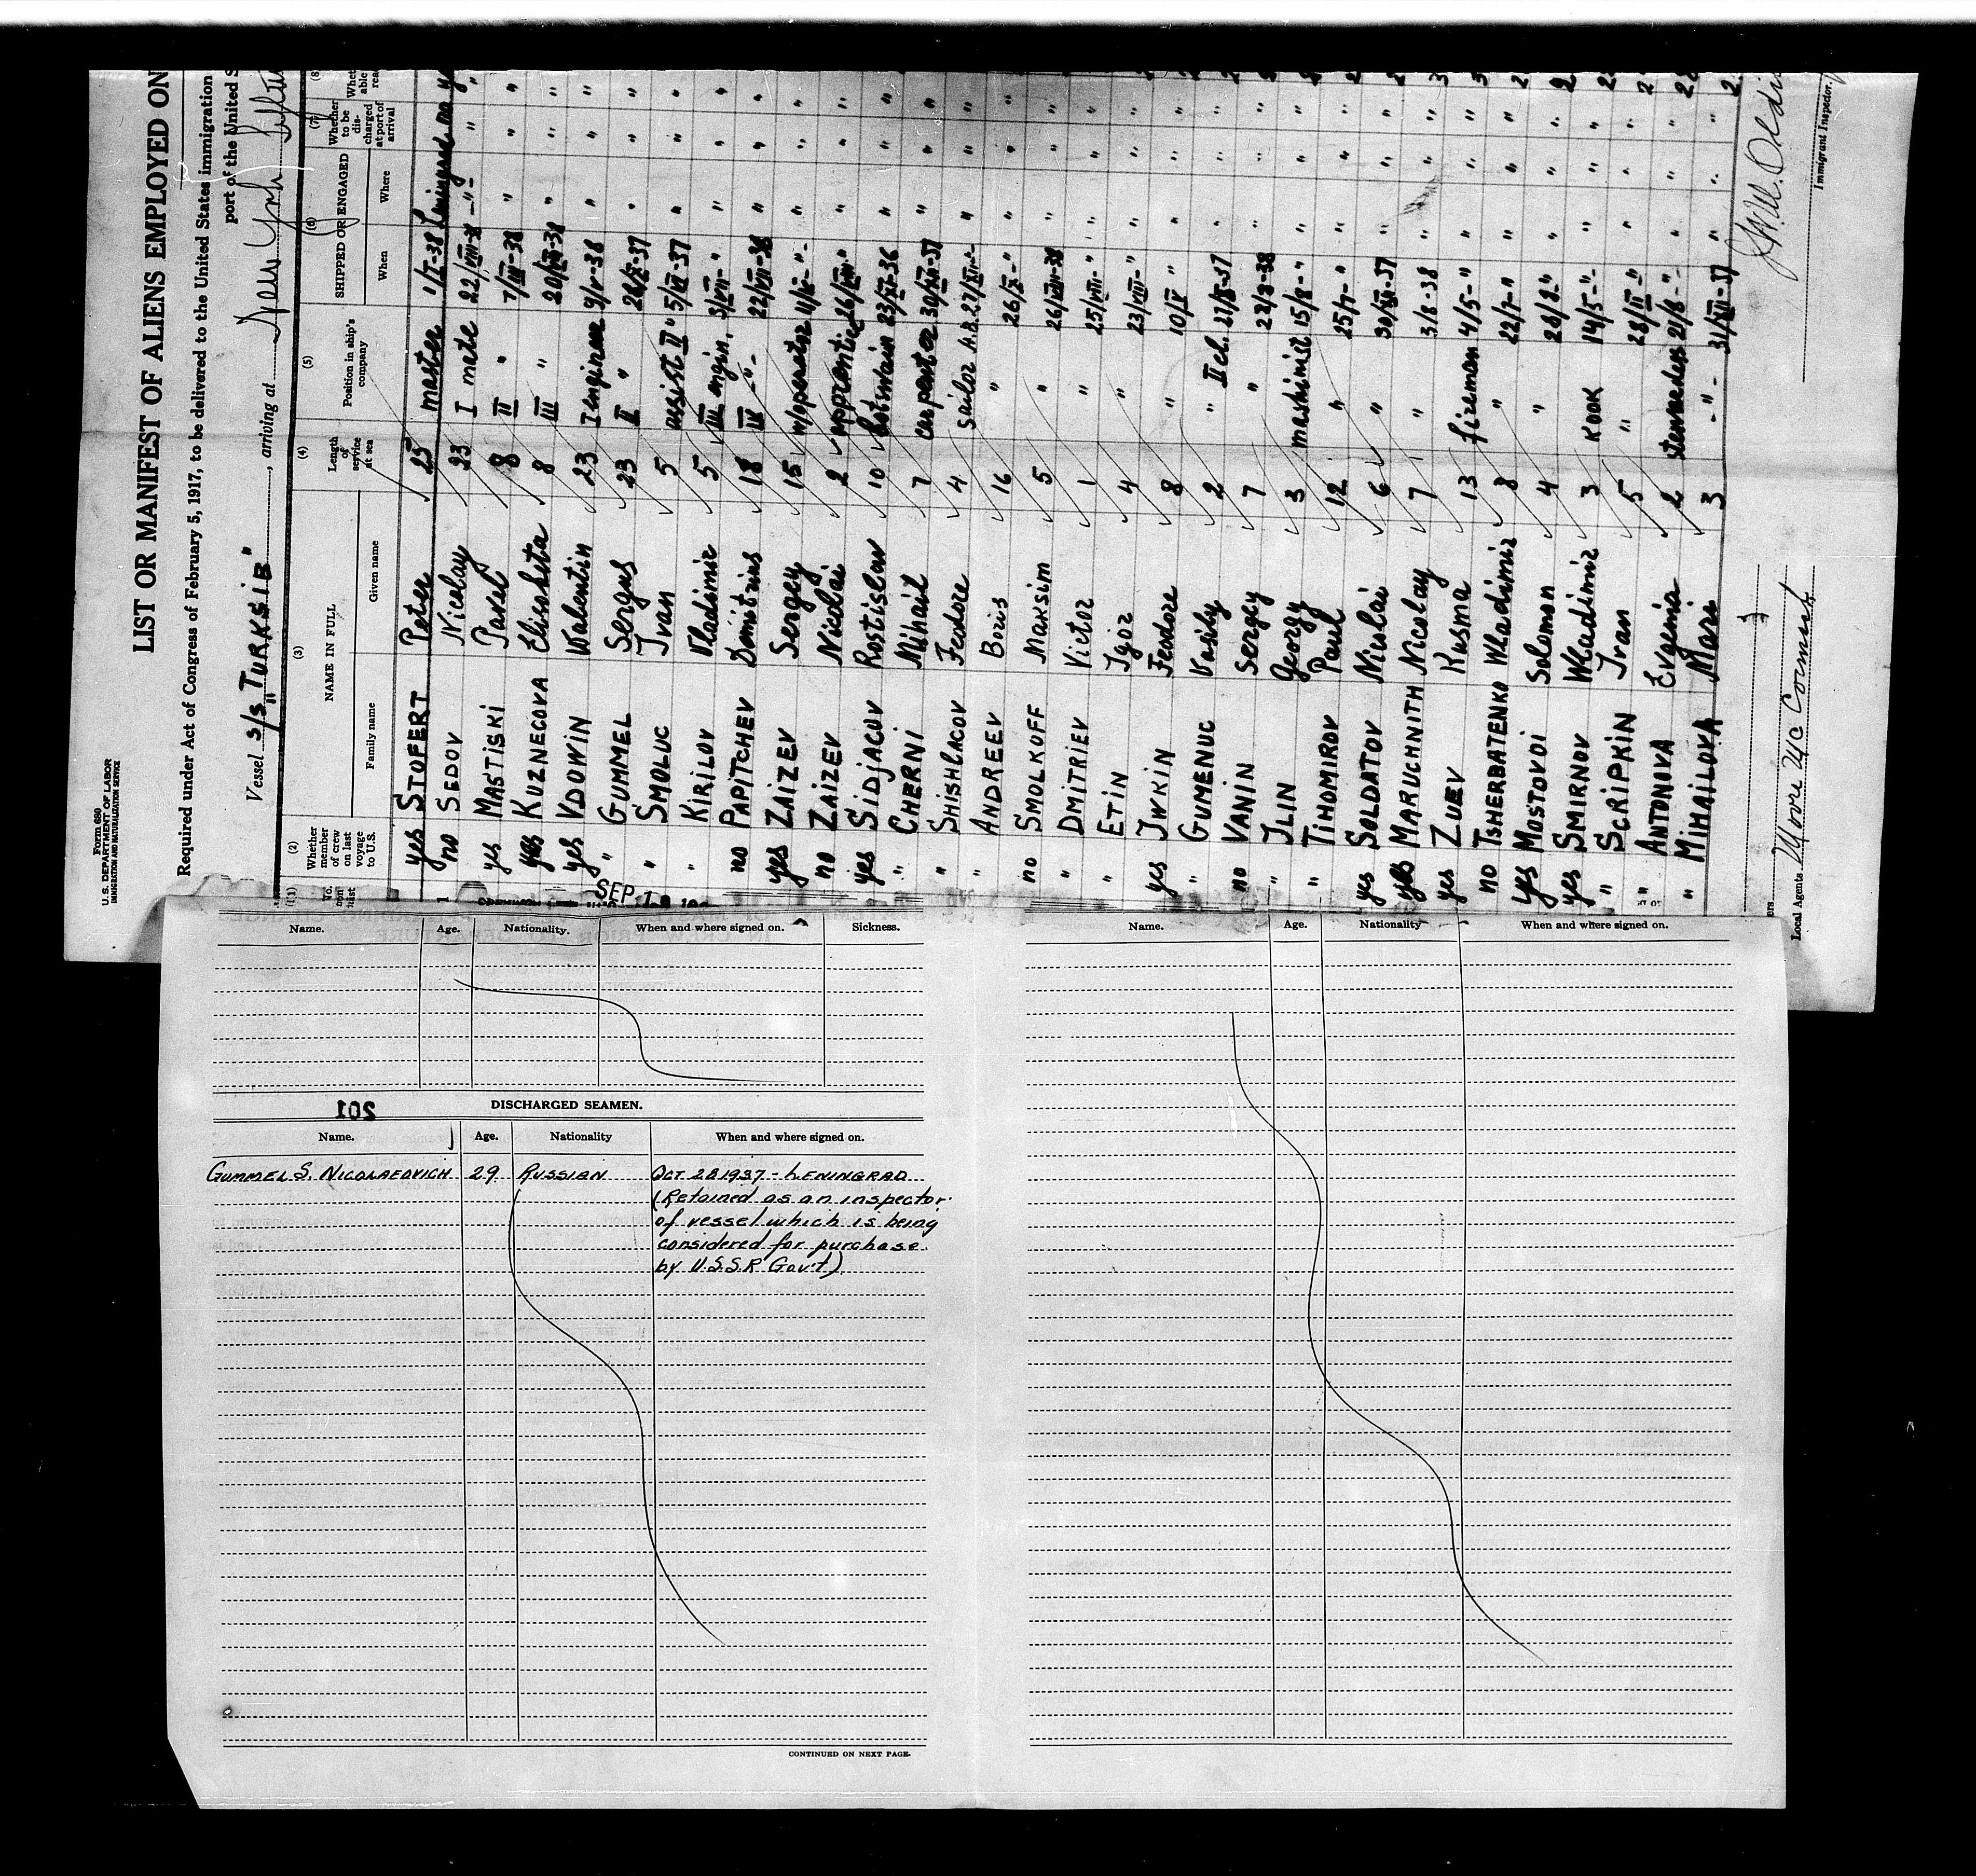 Form 680
U. S. DEPARTMENT OF LABOR
IMMIGRATION AND NATURALIZATION SERVICE
LIST OR MANIFEST OF ALIENS EMPLOYED ON
Required under Act of Congress of February 5, 1917, to be delivered to the United States immigration
port of the United S
Vessel S/S "TURKSIB", arriving at New York
(1) (2) (3) (4) (5) (6) (7) (8)
Whether member of crew on last voyage to U.S. NAME IN FULL Length of service at sea Position in ship's company SHIPPED OR ENGAGED Whether to be discharged at port of arrival
Family name Given name When Where
yes STOFERT Peter 25 master 1/I-38 Leningrad no
no SEDOV Nicolay 23 I mate 22/VIII-38 -"- "
yes MASTISKI Pavel 8 II " 7/III-38 " "
yes KUZNECOVA Elisaheta 8 III " " "
yes VDOWIN Walentin 23 I enginear " "
" GUMMEL Sergus 23 II " 26/X-37 " "
" SMOLUC Ivan 5 assist II " 5/XI-37 " "
" KIRILOV Vladimir 5 III engin. " "
no PAPITCHEV Demitrius 18 IV -"- " "
yes ZAIZEV Sergey 15 w/operator " "
no ZAIZEV Nicolai 2 apprentice " "
yes SIDJACOV Rostislaw 10 botswain " "
" CHERNI Mihail 7 carpenter " "
" SHISHLACOV Feodore 4 Sailor A.B. " "
" ANDREEV Boris 16 " 26/X-" " "
no SMOLKOFF Maksim 5 " 26/VIII-38 " "
" DMITRIEV Victor 1 " 25/VIII-" " "
" ETIN Igor 4 " 23/VIII-" " "
yes IWKIN Feodore 8 " 10/V " " "
" GUMENUC Vasily 2 " II cl. " "
no VANIN Sergey 7 " " "
" ILIN Georgy 3 mashinist 15/8-" " "
" TIHOMIROV Paul 12 " 25/7-" " "
yes SOLDATOV Nicolai 6 " " "
yes MARUCHNITH Nicolay 7 " 3/8-38 " "
yes ZUEV Kusma 13 fireman 4/5-" " "
no TSHERBATENKO Wladimir 8 " 22/7-" " "
yes MOSTOVOI Solomon 4 " 28/8-" " "
yes SMIRNOV Wladimir 3 KOOK 14/5-"- " "
" SCRIPKIN Ivan 5 " 28/II-" " "
" ANTONOVA Evgenia 2 21/8-" " "
" MIHAILOVA Mari 3 -"- 31/XII-37 " "
SEP
Local Agents Moore Mc Cormack
Immigrant Inspector.
Name. Age. Nationality. When and where signed on. Sickness.
201
DISCHARGED SEAMEN.
Name. Age. Nationality When and where signed on.
GUMMEL S. NICOLAEOVICH 29 RUSSIAN OCT 28 1937 - LENINGRAD
(Retained as an inspector
of vessel which is being
considered for purchase
by U.S.S.R Gov't)
CONTINUED ON NEXT PAGE.
Name. Age. Nationality When and where signed on.